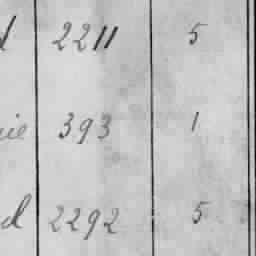 d 2211 5
ie 393 1
d 2292 5